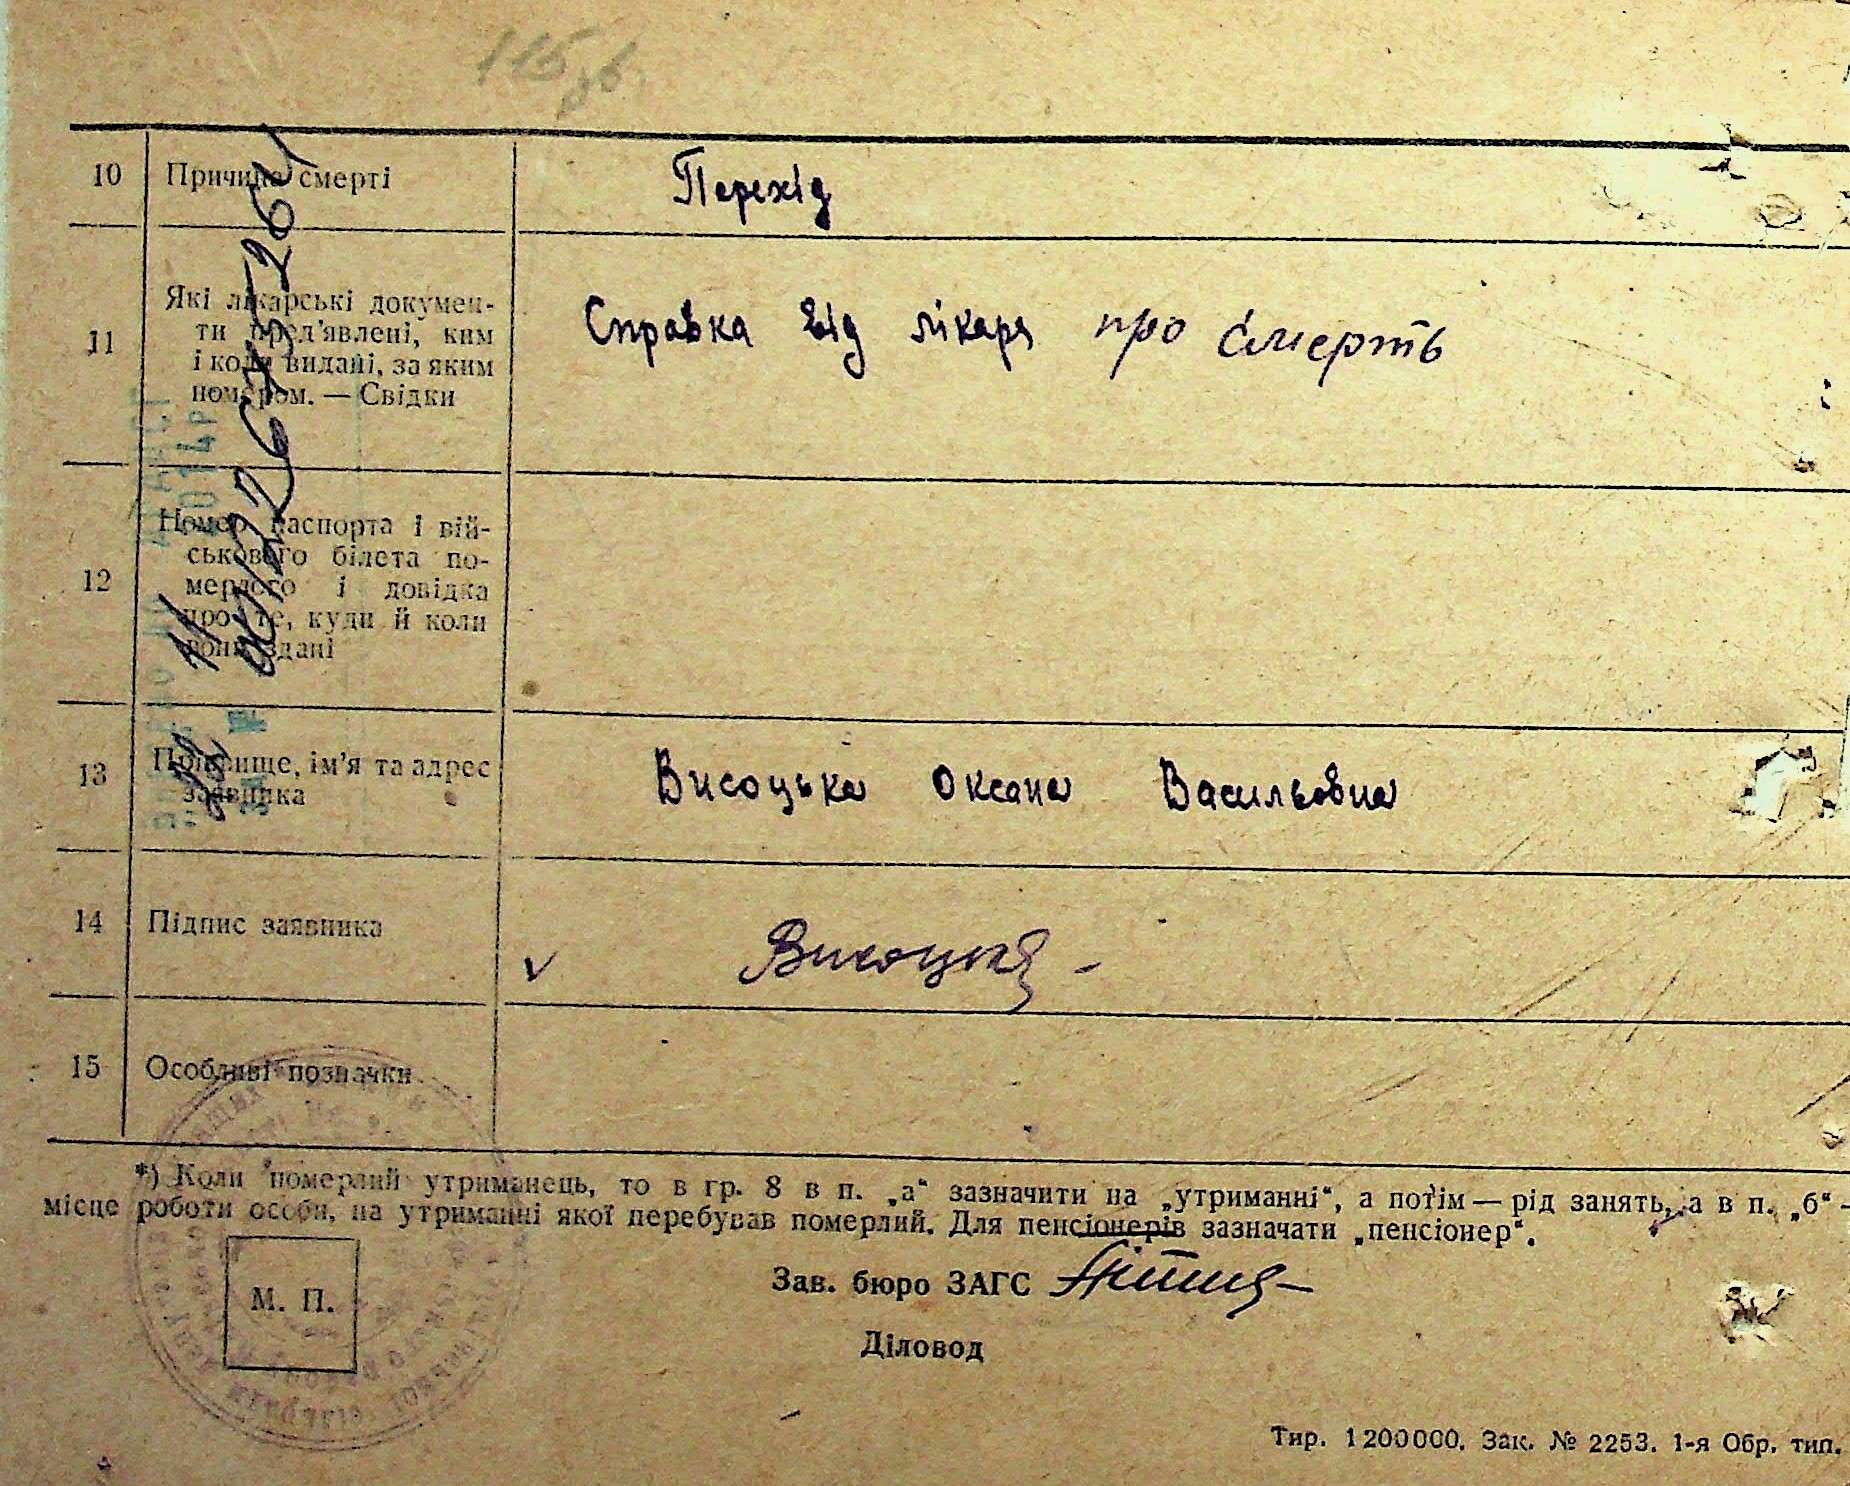 10 Причина смерті Перехід
11 Які лікарські докумен-
ти пред'явлені, ким
і коли видані, за яким
номером. — Свідки
Справка від лікаря про смерть
12 Номер паспорта і вій-
ськового білета по-
мерлого і довідка
про те, куди й коли
вони здані
13 Прізвище, ім'я та адрес
заявника
Висоцька Оксана Васильовна
14 Підпис заявника
v Висоцька
15 Особливі позначки
*) Коли померлий утриманець, то в гр. 8 в п. „а“ зазначити на „утриманні“, а потім — рід занять, а в п. „б“ -
місце роботи особи, на утриманні якої перебував померлий. Для пенсіонерів зазначати „пенсіонер“.
М. П.
Зав. бюро ЗАГС
Діловод
Тир. 1200000. Зак. № 2253. 1-я Обр. тип.